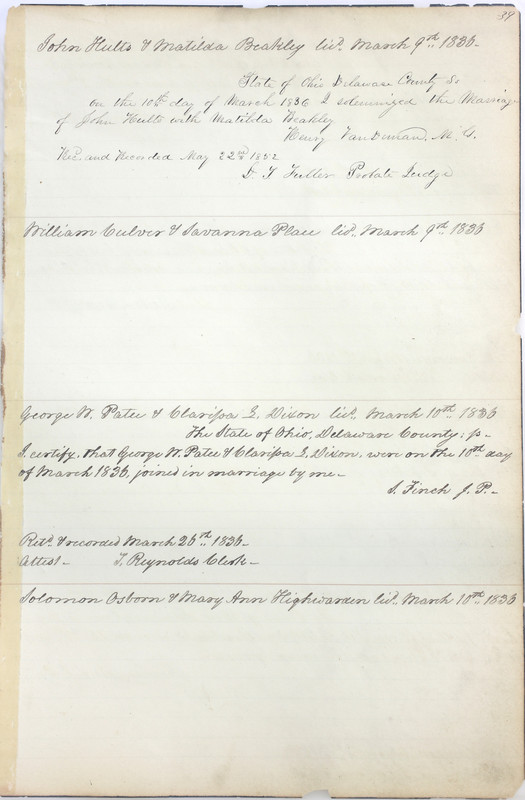 39
John Hults & Matilda Beakley lic. March 9th 1836-
State of Ohio Delaware County Ss
on the 10th day of March 1836 I solemnized the Marriage
of John Hults with Matilda Beakley
Henry VanDeman, M. G.
Rec. and Recorded May 22nd 1852
D. T. Fuller Probate Judge
William Culver & Savanna Place lic. March 9th 1836
George W. Patee & Clarissa G. Dixon lic. March 10th 1836
The State of Ohio, Delaware County: ss-
I certify, that George W. Patee & Clarissa G. Dixon, were on the 10th day
of March 1836, joined in marriage by me-
S. Finch J. P.-
Retd. & recorded March 26th 1836-
Attest- T. Reynolds Clerk-
Solomon Osborn & Mary Ann Highwarden lic. March 10th 1836